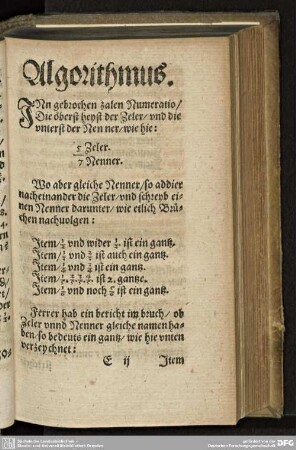 Algorithmus.
INn gebrochen zalen Numeratio/
Die öberst heyst der Zeler/ vnd die
vnterst der Nenner/ wie hie:
5 Zeler.
7 Nenner.
Wo aber gleiche Nenner/ so addier
nacheinander die Zeler/ vnd schreyb ei-
nen Nenner darunter/ wie etlich Brü-
chen nachuolgen:
Item/ vnd wider ist ein gantz.
Item/ vnd ist auch ein gantz.
Item/ vnd ist ein gantz.
Item/ ist 2. gantze.
Item/ vnd noch ist ein gantz.
Ferrer hab ein bericht im bruch/ ob
Zeler vnnd Nenner gleiche namen ha-
ben/ so bedeuts ein gantz/ wie hie vnten
verzeychnet:
E ij Item